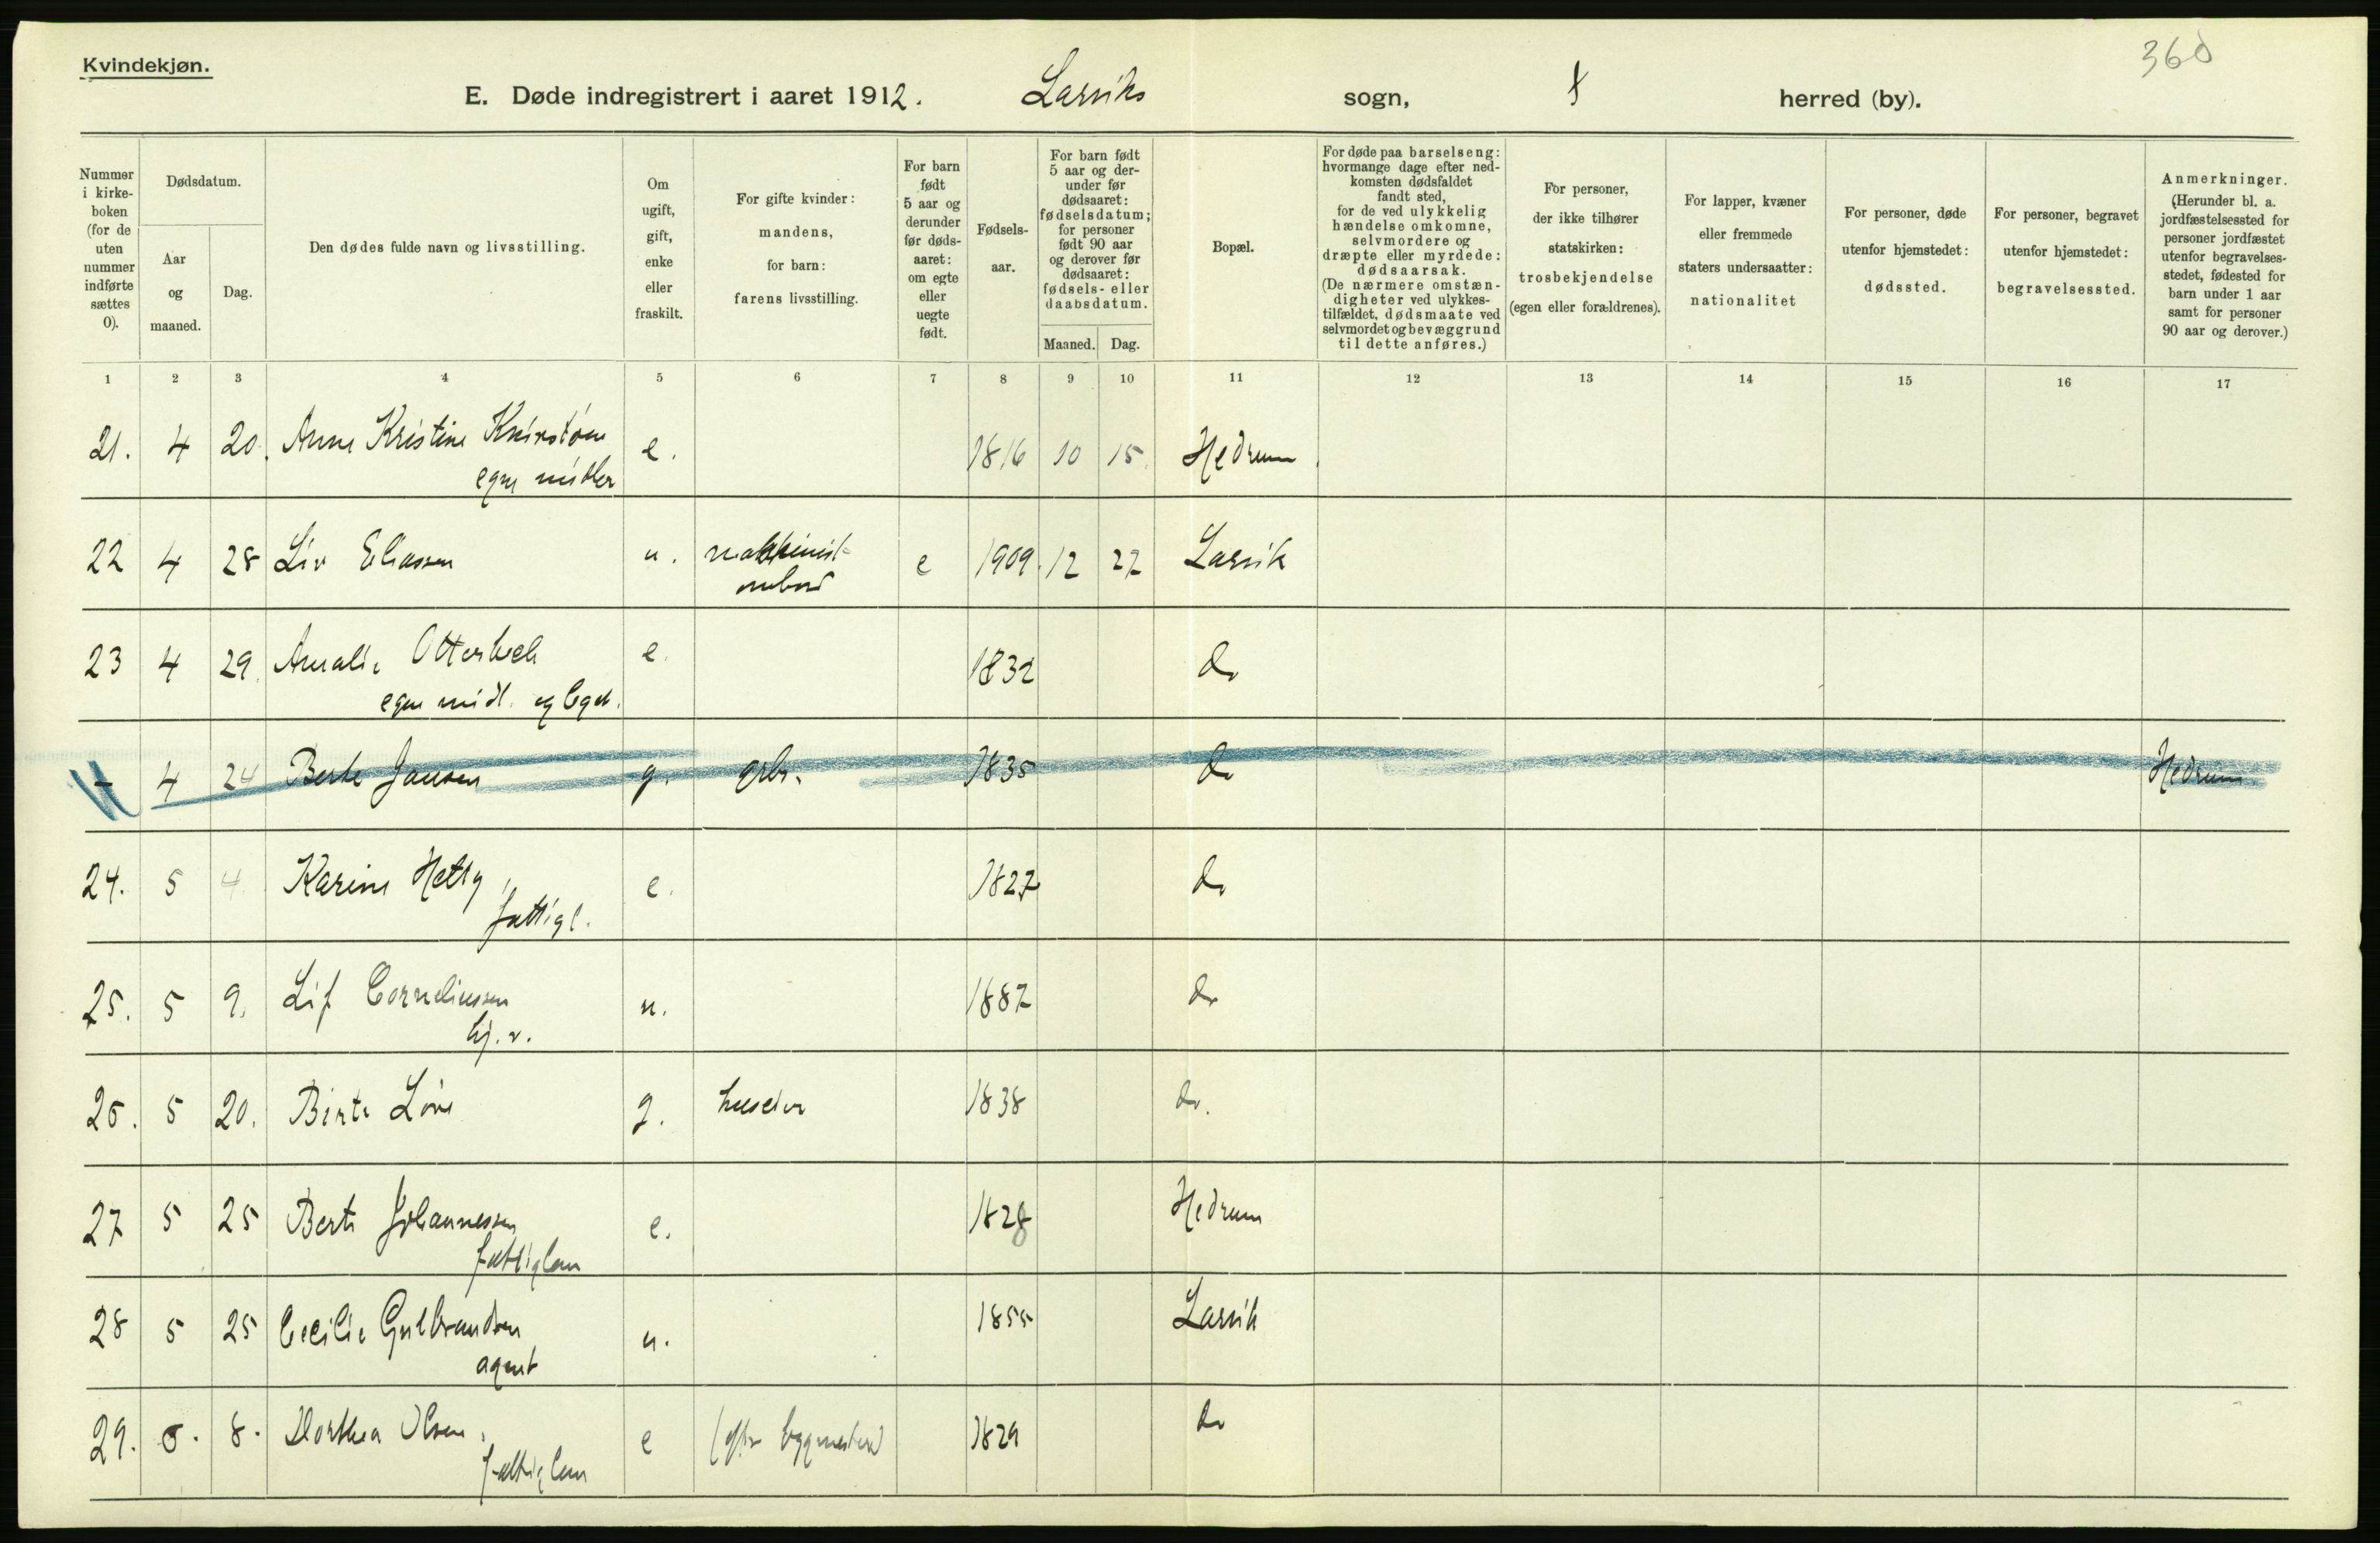 Kvindekjøn.
360
E. Døde indregistrert i aaret 1912. Larviks sogn, herred (by).
Nummer i kirke-boken (for de uten nummer indførte sættes 0).
Dødsdatum.
Aar og maaned.
Dag.
Den dødes fulde navn og livsstilling.
Om ugift, gift, enke eller fraskilt.
For gifte kvinder: mandens, for barn: farens livsstilling.
For barn født 5 aar og derunder før døds-aaret: om egte eller uegte født.
Fødsels-aar.
For barn født 5 aar og der-under før dødsaaret: fødselsdatum; for personer født 90 aar og derover før dødsaaret: fødsels- eller daabsdatum.
Maaned. Dag.
Bopæl.
For døde paa barselseng: hvormange dage efter ned-komsten dødsfaldet fandt sted, for de ved ulykkelig hændelse omkomne, selvmordere og dræpte eller myrdede: dødsaarsak. (De nærmere omstæn-digheter ved ulykkes-tilfældet, dødsmaate ved selvmordet og bevæggrund til dette anføres.)
For personer, der ikke tilhører statskirken: trosbekjendelse (egen eller forældrenes).
For lapper, kvæner eller fremmede staters undersaatter: nationalitet
For personer, døde utenfor hjemstedet: dødssted.
For personer, begravet utenfor hjemstedet: begravelsessted.
Anmerkninger. (Herunder bl. a. jordfæstelsessted for personer jordfæstet utenfor begravelses-stedet, fødested for barn under 1 aar samt for personer 90 aar og derover.)
1 2 3 4 5 6 7 8 9 10 11 12 13 14 15 16 17
21. 4 20. Anne Kristine e. 1816 10 15. Hedrum
egne midler
22 4 28 Liv Eliassen u. maskinist- e 1909. 12 27 Larvik
ombord
23 4 29. Amalie Otterbech e. 1832 do
egne midl. og
- 4 24 Berte Jansen g. arb. 1835 do Hedrum.
24. 5 4. Karine e. 1827 do
fattigl.
25. 5 9. Lif Corneliussen u. 1887 do
hj. v.
26. 5 20. Berte Løve g. huseier 1838 do.
27 5 25 Berte Johannessen e. 1828 Hedrum
fattiglem
28 5 25 Cecilie Gulbrandsen u. 1855 Larvik
agent
29. 6. 8. Dorthea Olsen, e (efter bygmester) 1829 do
fattiglem